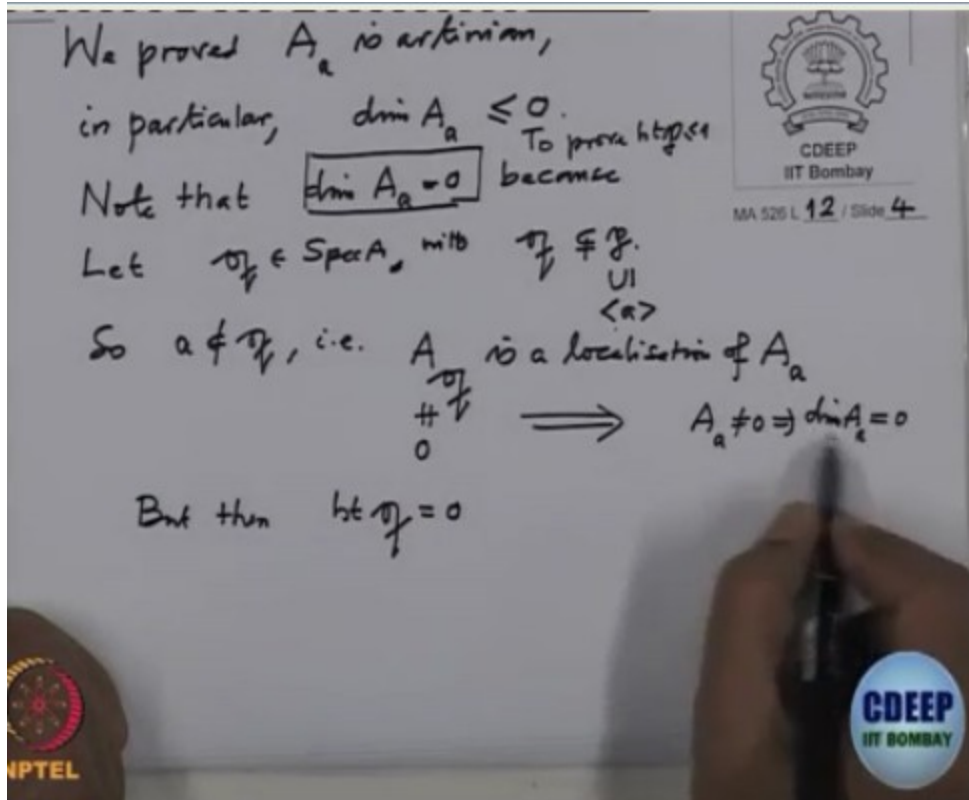 We proved A_a is artinian,
in particular, dim A_a ≤ 0.
To prove ht 𝔭 ≤ 1
Note that dim A_a = 0 because
Let 𝔮 ∈ Spec A, with 𝔮 ⊊ 𝔭.
∪I
<a>
So a ∉ 𝔮, i.e. A_𝔮 is a localisation of A_a
≠
0
⟹ A_a ≠ 0 ⇒ dim A_a = 0
But then ht 𝔮 = 0
CDEEP
IIT Bombay
MA 526 L 12 / Slide 4
NPTEL
CDEEP
IIT BOMBAY